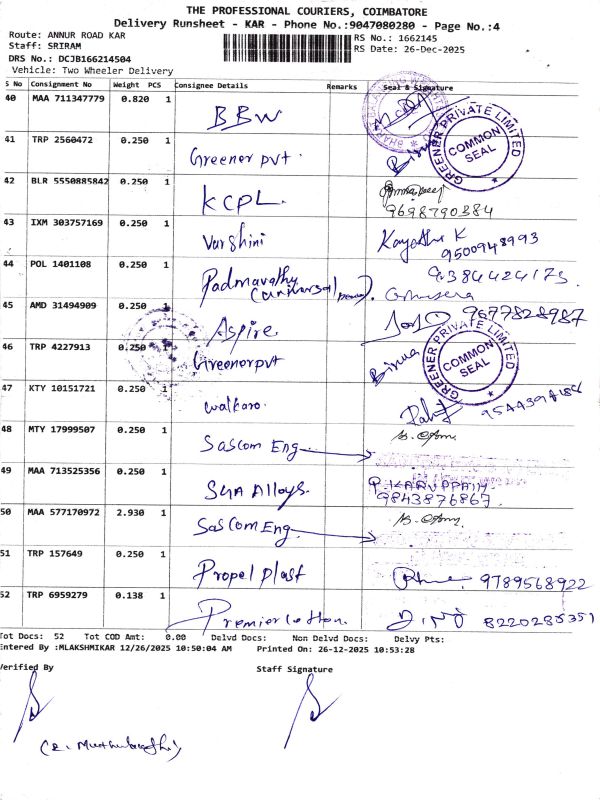 THE PROFESSIONAL COURIERS, COIMBATORE
Delivery Runsheet - KAR - Phone No.:9047080280 - Page No.:4
Route: ANNUR ROAD KAR RS No.: 1662145
Staff: SRIRAM RS Date: 26-Dec-2025
DRS No.: DCJB166214504
Vehicle: Two Wheeler Delivery
S No Consignment No Weight PCS Consignee Details Remarks Seal & Signature
40 MAA 711347779 0.820 1 BBW
41 TRP 2560472 0.250 1 Greener pvt. GREENER PRIVATE LIMITED COMMON SEAL
42 BLR 5550885842 0.250 1 KCPL. 9698790384
43 IXM 303757169 0.250 1 Varshini K 9500948993
44 POL 1401108 0.250 1 Padmavathy 9384424175
45 AMD 31494909 0.250 1 Aspire. 9677828987
46 TRP 4227913 0.250 1 Greener pvt GREENER PRIVATE LIMITED COMMON SEAL
47 KTY 10151721 0.250 1 Walkaro.
48 MTY 17999507 0.250 1 Sascom Eng
49 MAA 713525356 0.250 1 SUA Alloys. P. KARUPPAIYA 9843876867
50 MAA 577170972 2.930 1 Sascom Eng
51 TRP 157649 0.250 1 Propel plast 9789568922
52 TRP 6959279 0.138 1 Premier cotton. 8220285351
Tot Docs: 52 Tot COD Amt: 0.00 Delvd Docs: Non Delvd Docs: Delvy Pts:
Entered By :MLAKSHMIKAR 12/26/2025 10:50:04 AM Printed On: 26-12-2025 10:53:28
Verified By Staff Signature